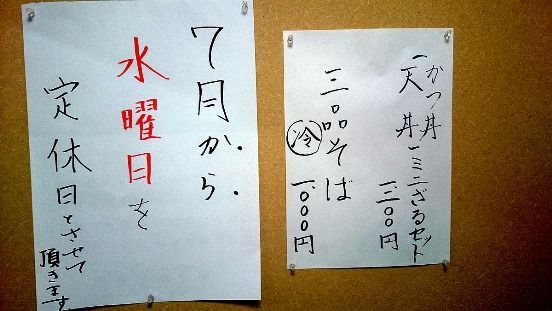 7月から
水曜日を
定休日とさせて
頂きます
かつ丼
天丼
ミニざるセット
一、二〇〇円
三品そば
冷 一、〇〇〇円